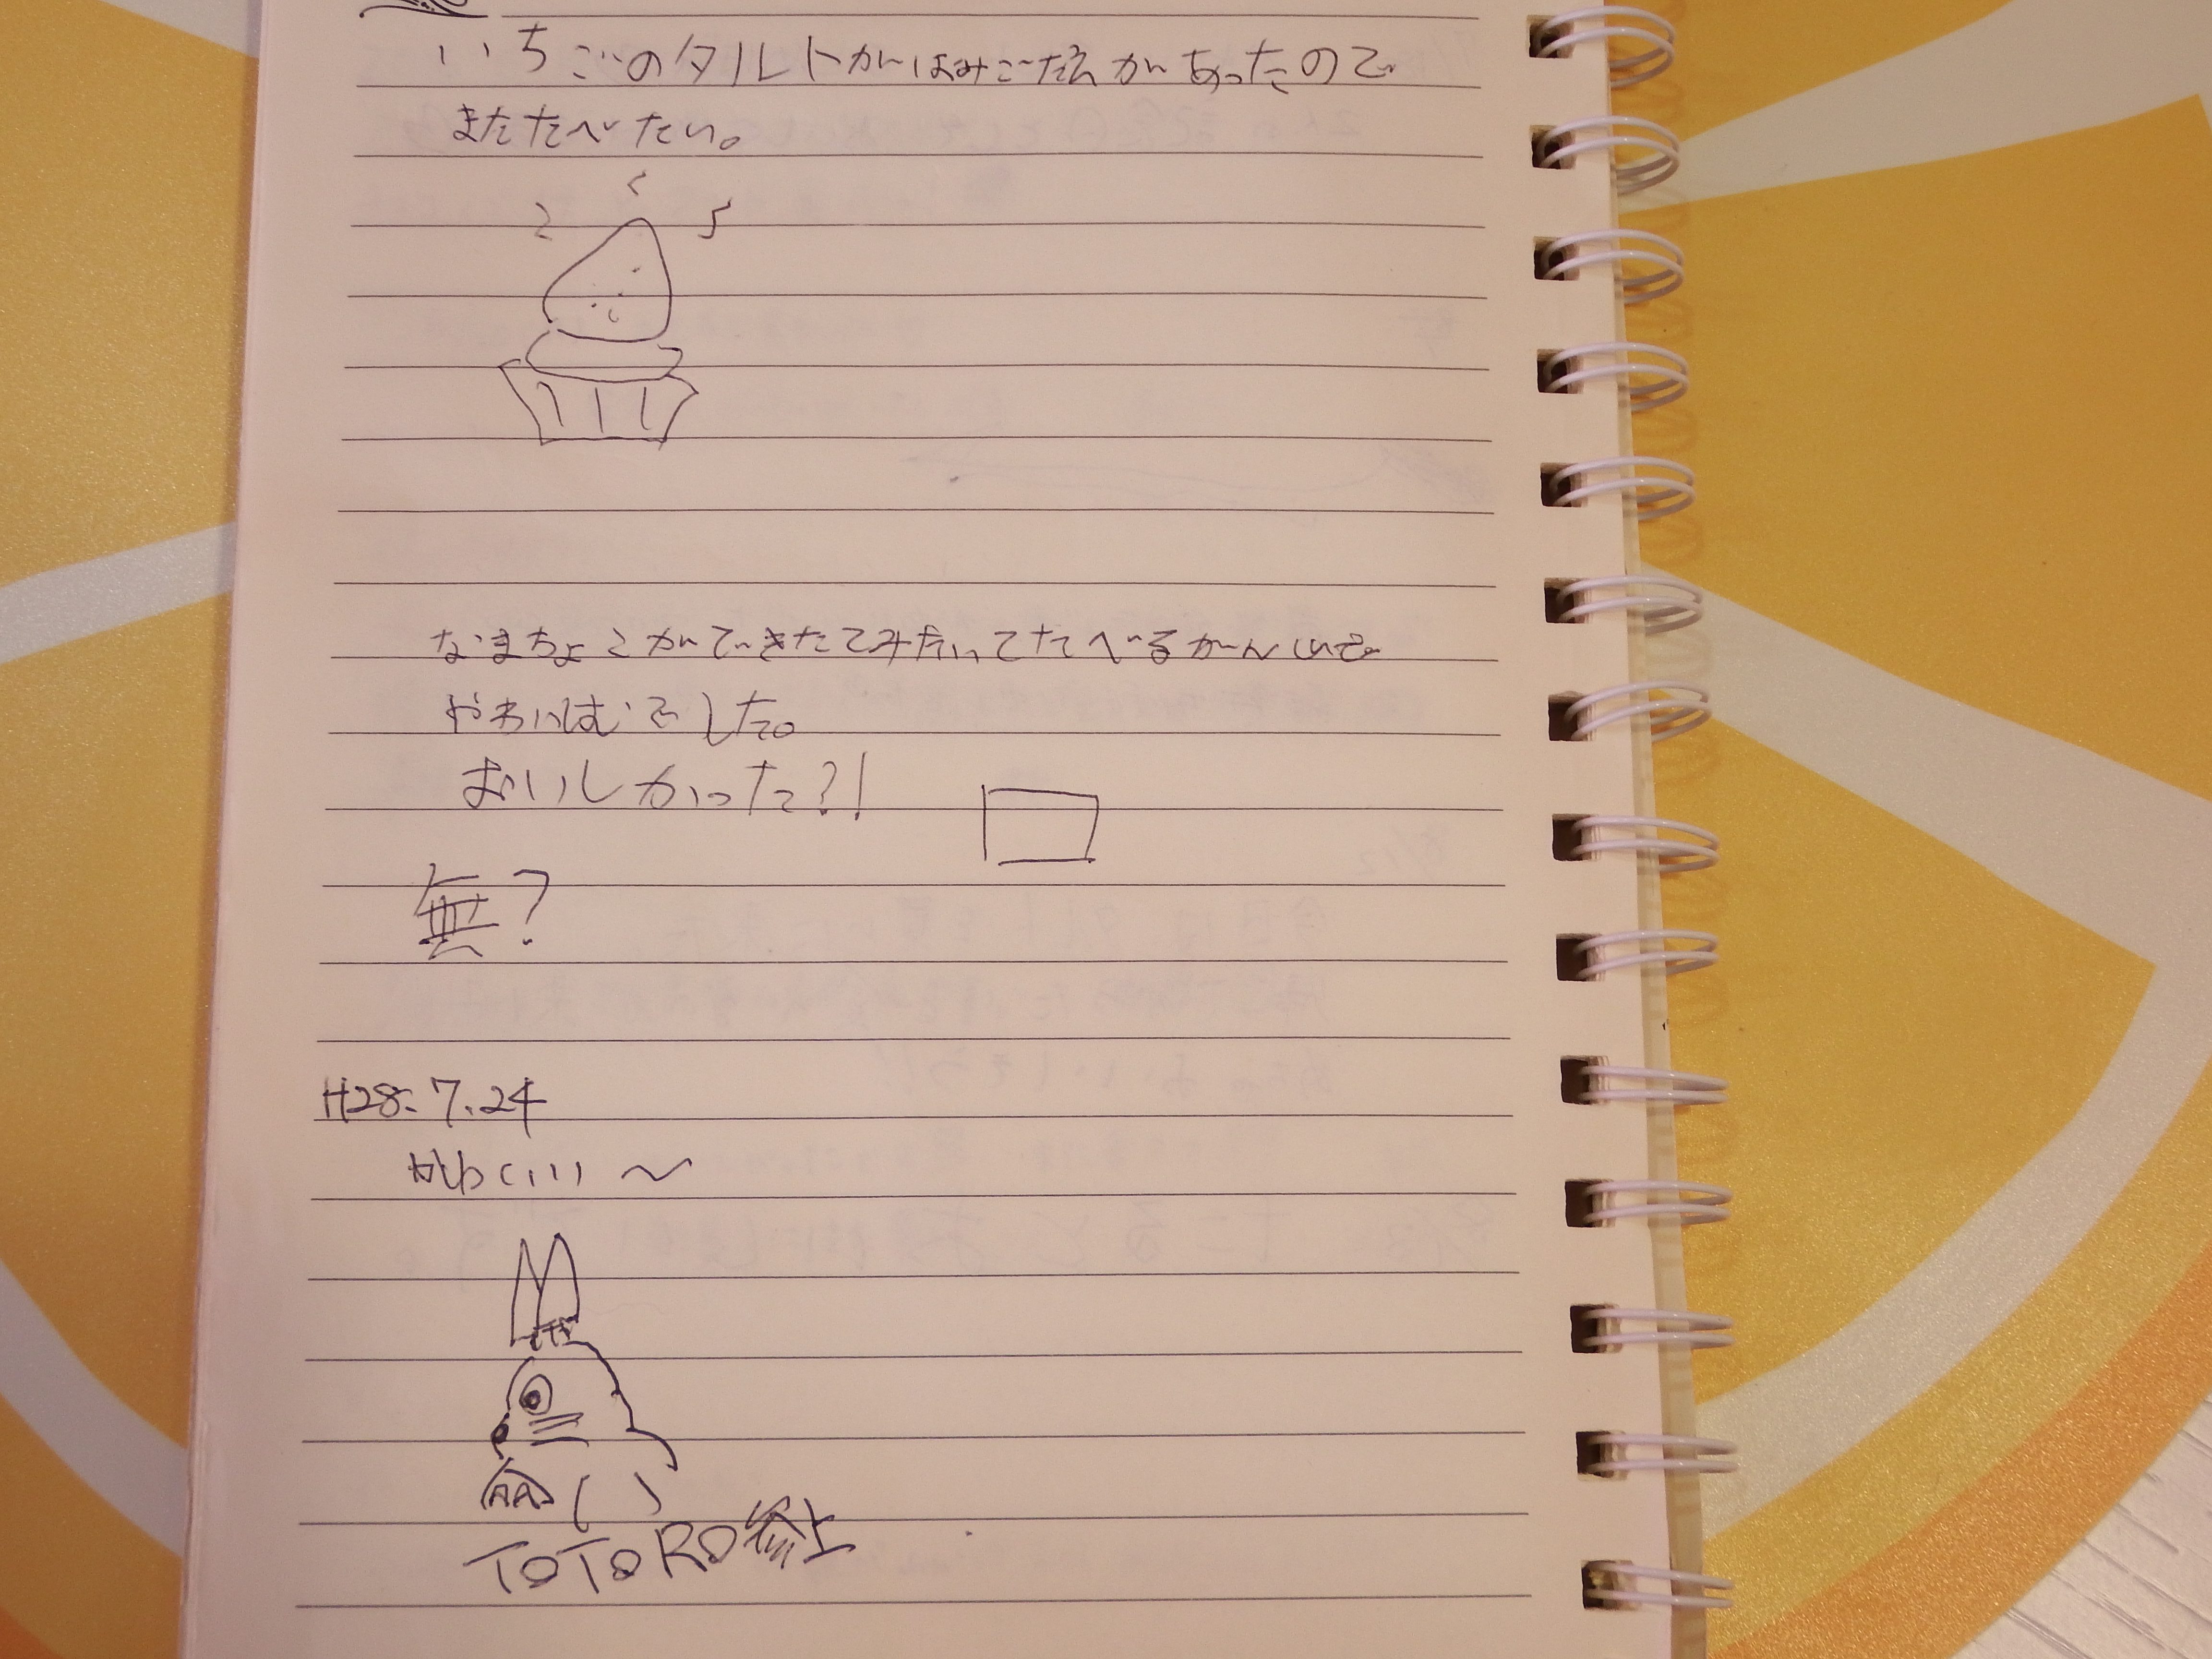 いちごのタルトがはみごたえがあったので
またたべたい。
なまちょこができたてみたいでたべるかんじで
やわいはむでした。
おいしかった?!
無?
H28.7.24
かわいい〜
TOTORO参上